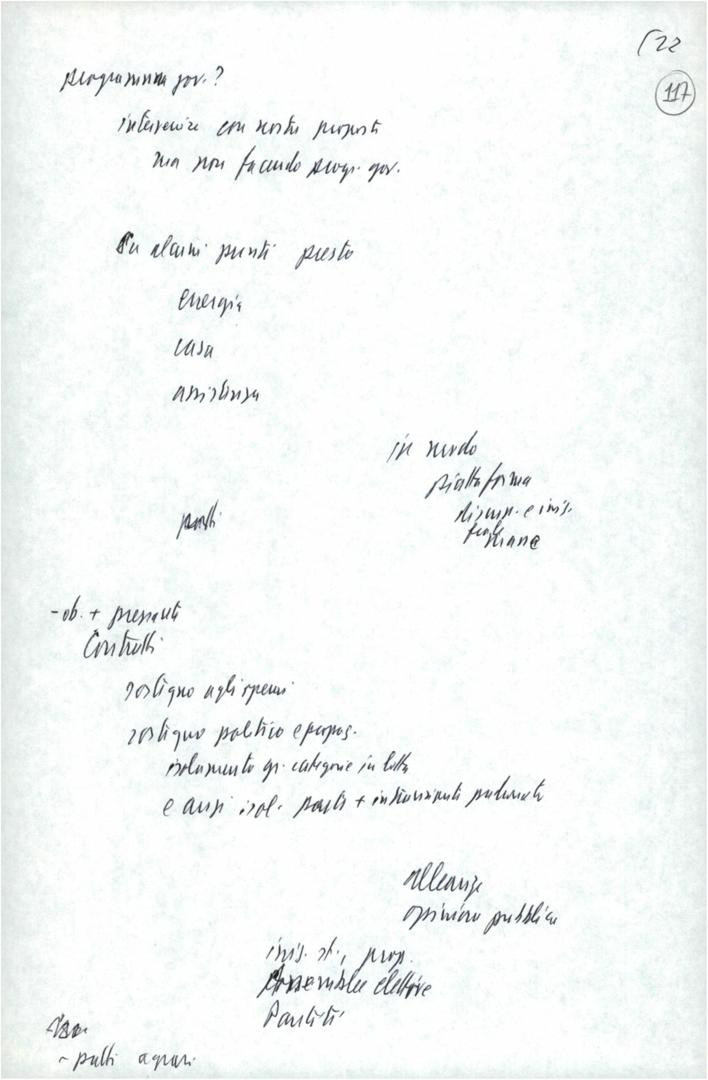 (22
117
programma gov.?
intervenire con nostre proposte
ma non facendo progr. gov.
Su alcuni punti presto
energia
casa
assistenza
in modo
piattaforma
discuss. e iniz.
patti
- ob. + pressanti
Contratti
sostegno agli operai
sostegno politico e propag.
isolamento gr. categorie in lotta
e anzi isol. parti + intransigenti padronato
alleanze
opinione pubblica
iniz. st., prop.
Assemblee elettive
Partiti
- patti agrari